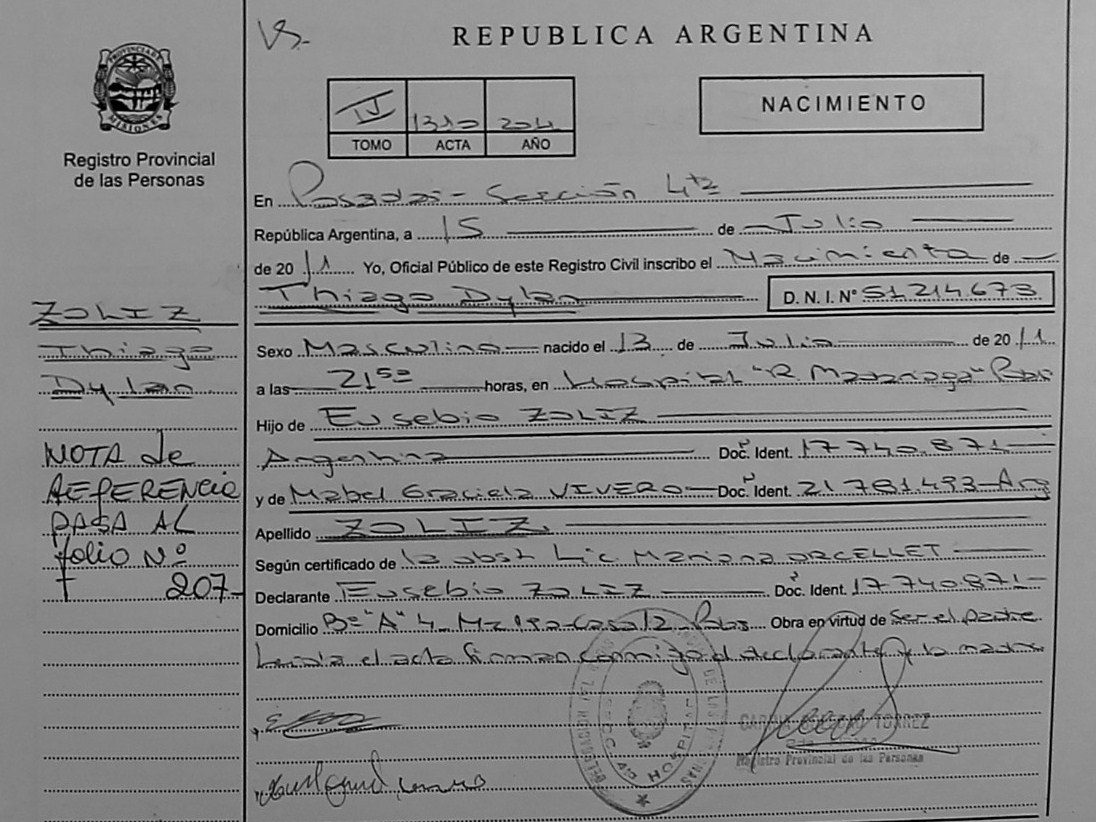 Vs.-
REPUBLICA ARGENTINA
PROVINCIA DE
MISIONES
Registro Provincial
de las Personas
IV 1310 2011
TOMO ACTA AÑO
NACIMIENTO
En Posadas - Sección 4ta
República Argentina, a 15 de Julio
de 2011 Yo, Oficial Público de este Registro Civil inscribo el Nacimiento de
Thiago Dylan D.N.I. N° 51214673
Sexo Masculino nacido el 13 de Julio de 2011
a las 21 50 horas, en Hospital "R. Madariaga" Pdas
Hijo de Eusebio ZOLIZ
Argentina Doc. Ident. 17 740.871
y de Mabel Graciela VIVERO Doc. Ident. 21 781.493-Arg
Apellido ZOLIZ
Según certificado de la obst Lic. Mariana ORCELLET
Declarante Eusebio ZOLIZ Doc. Ident. 17 740871
Domicilio B° "A" 4 Mz Casa 12 Pdas Obra en virtud de Ser el padre
Leída el acta firman conmigo el declarante y la madre
TORREZ
Registro Provincial de las Personas
SECC 4ta HOSPITAL
ZOLIZ
Thiago
Dylan
NOTA de
REFERENCIA
PASA AL
folio N°
207-